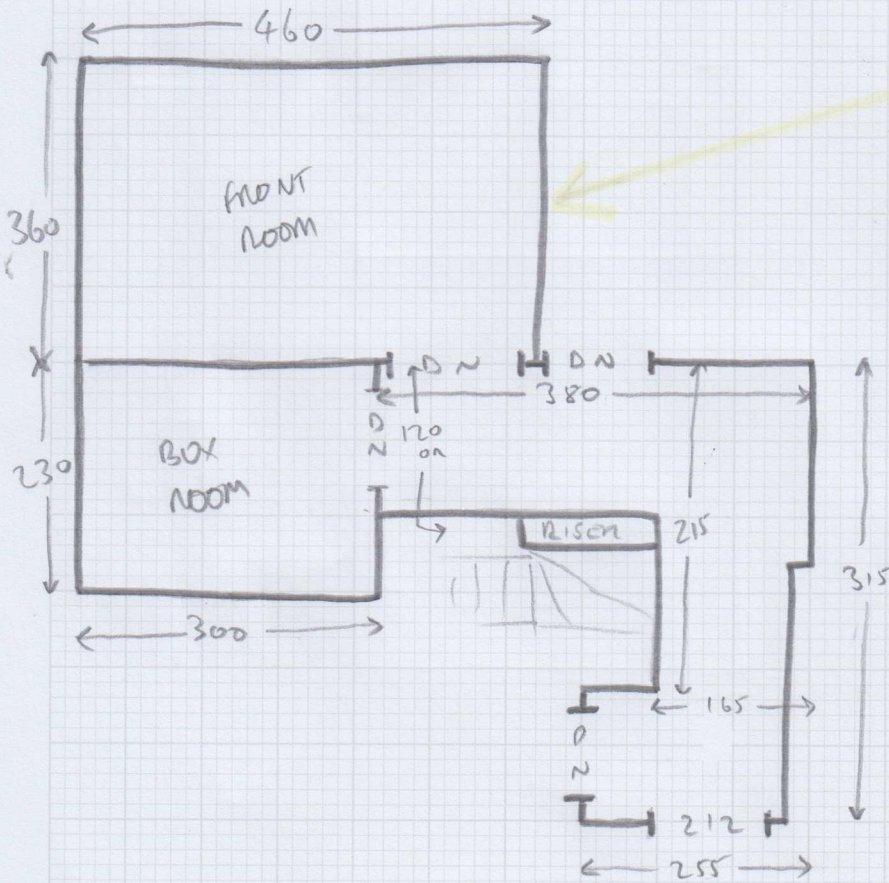 460
360
FRONT
ROOM
D R
D R
380
D
R
120
230
BOX
ROOM
RISER
215
315
300
165
D
R
212
255